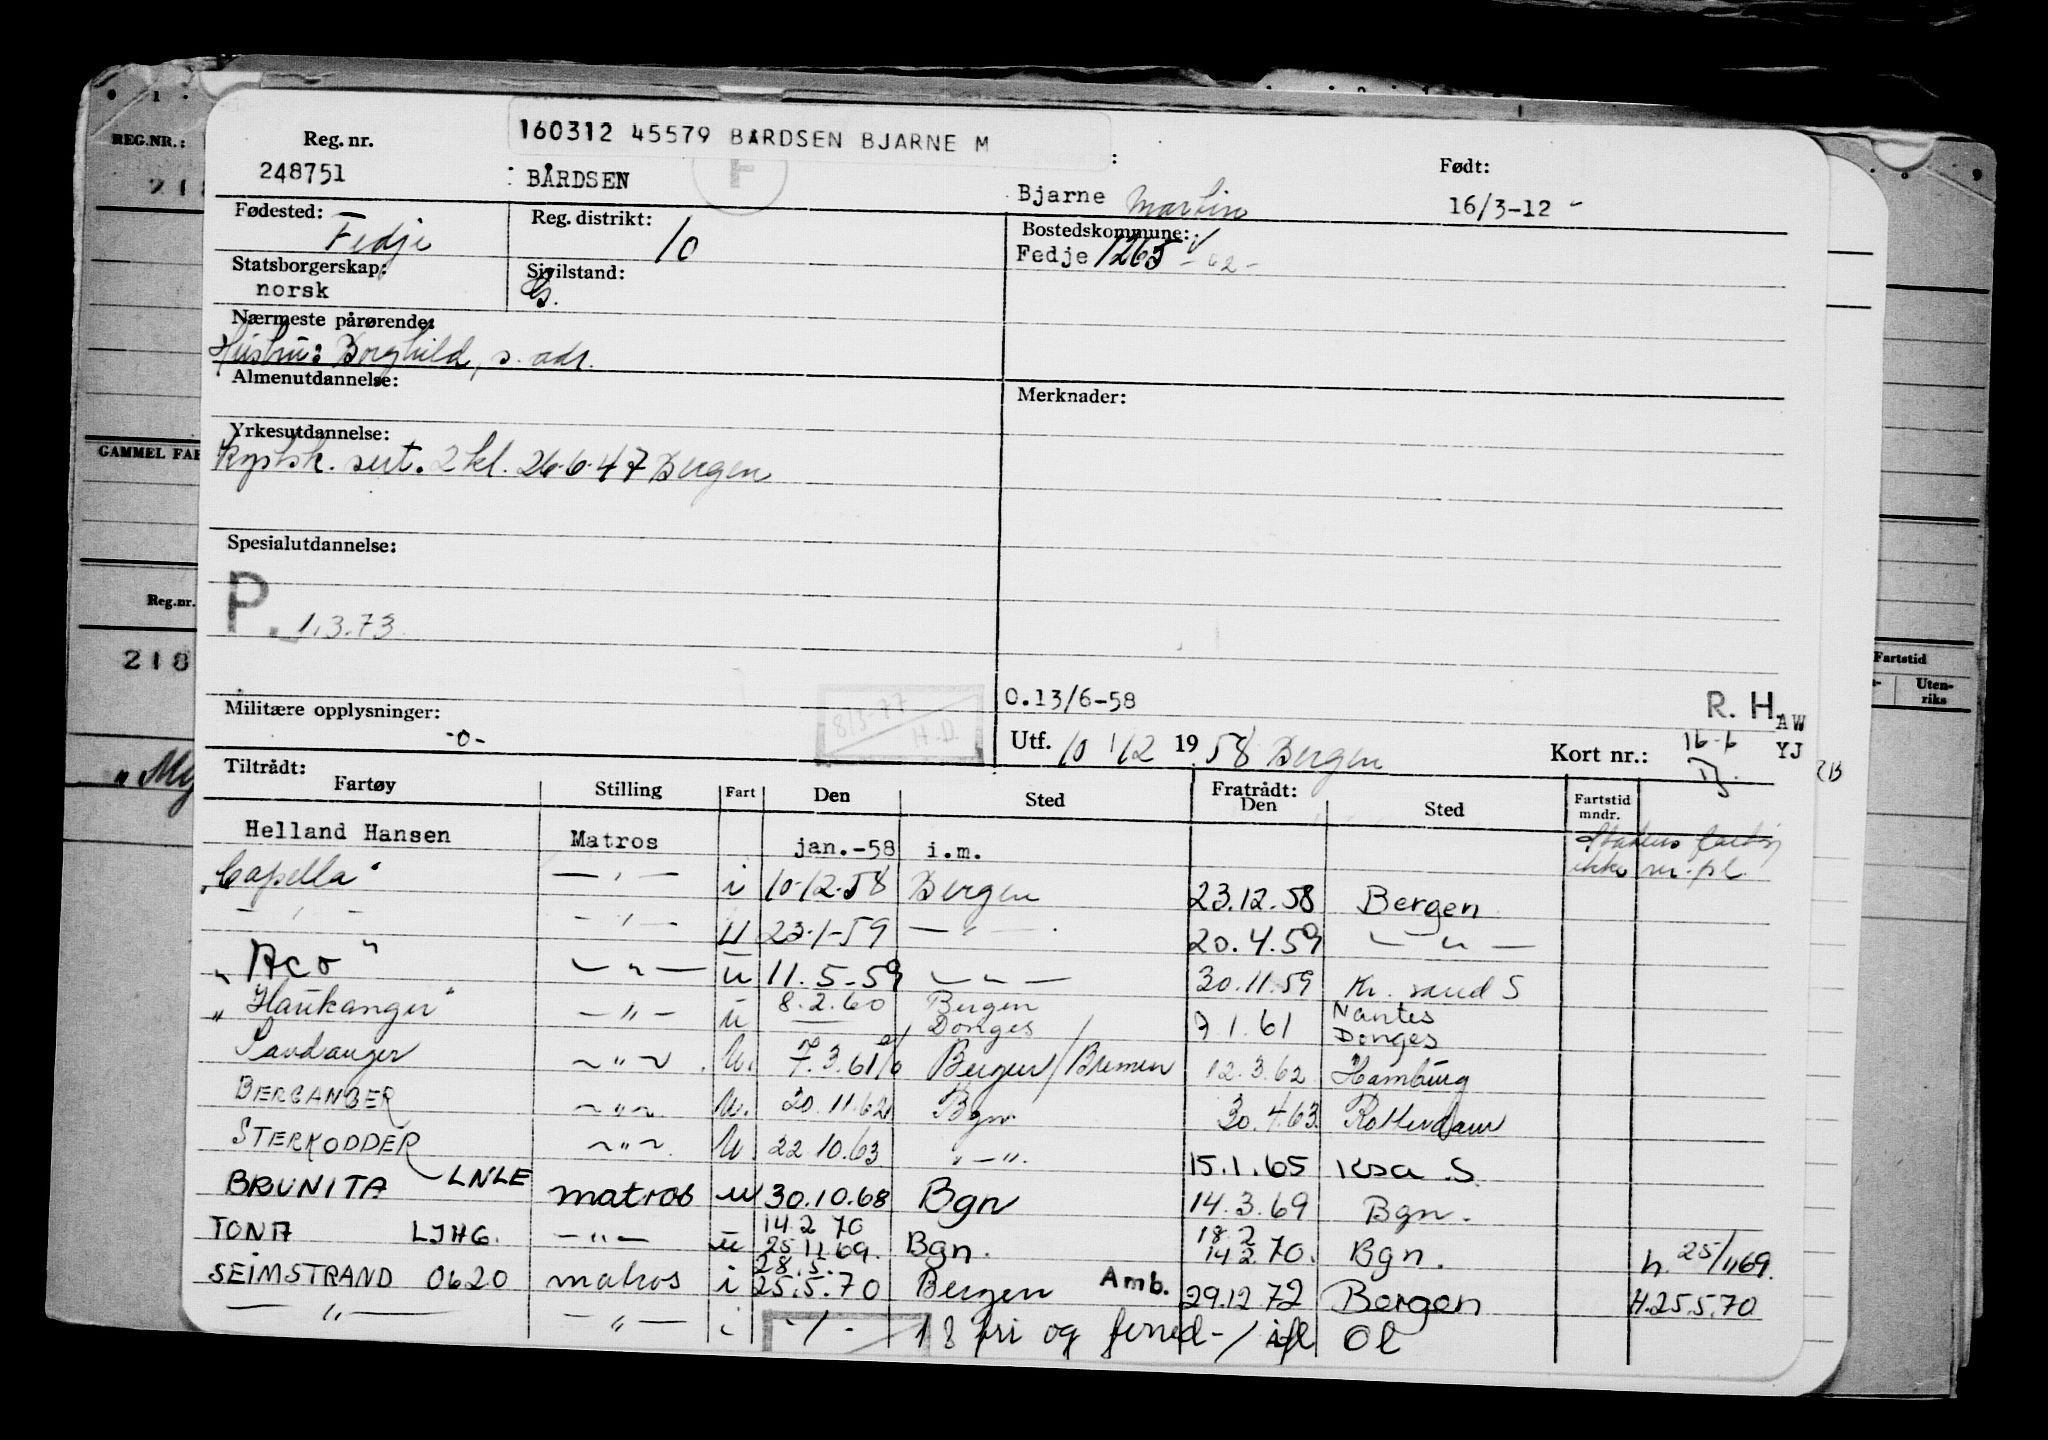 REG.NR.:
GAMMEL FAR
Reg.nr.
218
Fartstid
Uten-
riks
160312 45579 BARDSEN BJARNE M
Reg. nr.
248751
BÅRDSEN
Bjarne Martin
Født:
16/3-12 -
Fødested:
Fedje
Reg. distrikt:
10
Bostedskommune:
Fedje 1265
Statsborgerskap:
norsk
Sivilstand:
G.
Nærmeste pårørende:
Hustru: Borghild, s. adr.
Almenutdannelse:
Merknader:
Yrkesutdannelse:
Kystsk. sert. 2 kl. 26.6.47 Bergen
Spesialutdannelse:
P. 1.3.73
Militære opplysninger:
-o-
8/3-77
H.D.
0.13/6-58
R. H. AW
Utf. 10/12 1958 Bergen
Kort nr.:
16-6
YJ
Tiltrådt:
Fratrådt:
Fartøy Stilling Fart Den Sted Den Sted Fartstid mndr.
Helland Hansen Matros jan.-58 i.m.
"Capella" — " — i 10-12-58 Bergen 23.12.58 Bergen
— " — — " — U 23-1-59 — " — 20.4.59 — " —
"Aco" — " — u 11.5-59 — " — 30.11.59 Kr. sand S
"Haukanger" — " — u 8.2.60 Bergen Donges 7.1.61 Nantes Donges
Sandanger — " — U. 7.3.61 Bergen/Bremen 12.3.62 Hamburg
BERGANGER — " — U. 20.11.62 Bgn 30.4.63 Rotterdam
STERKODDER — " — U. 22 10.63 — " — 15.1.65 Ksa S.
BRUNITA LNLE matros u 30.10.68 Bgn 14.3.69 Bgn.
14.2 70 18.2
TONA LJHG. — " — u 25 11 69. Bgn. 14 2 70. Bgn. h. 25/11 69.
28.5.
SEIMSTRAND 0620 matros i 25.5.70 Bergen Amb. 29.12 72 Bergen H.25.5.70
— " — — " — i - / - 18 fri og feried - / ifl Ol